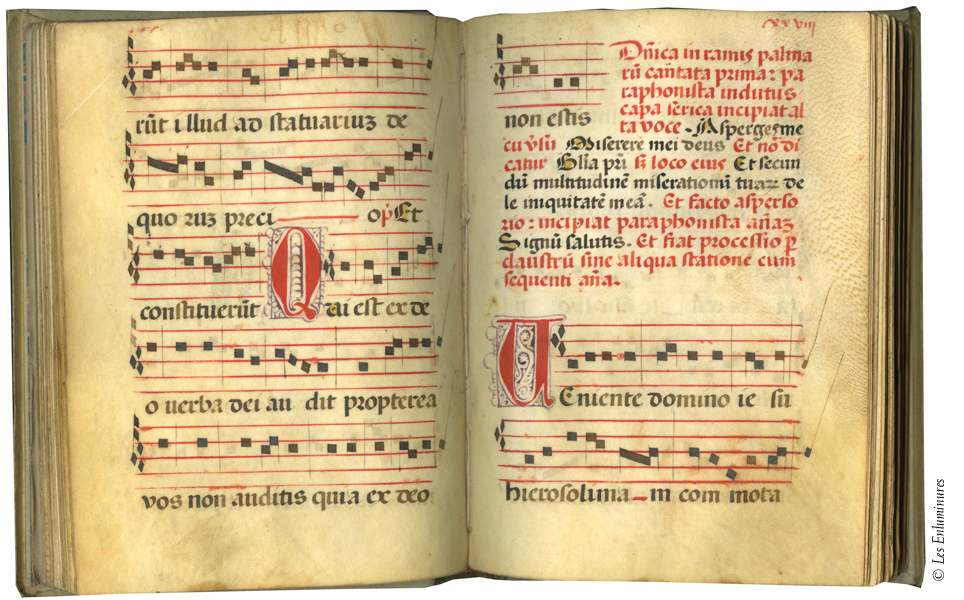 rūt illud ad statuariuz de
quo ruz preci op̄ Et
constituerūt Qui est ex de
o uerba dei au dit propterea
vos non auditis quia ex deo
xxviii
non estis
Dn̄ica in ramis palma
rū cantata prima: pa
raphonista indutus
capa serica incipiat al
ta voce. Asperges me
cu v̄su Miserere mei deus Et nō di
catur Gl̄ia pr̄i si loco eius Et secun
dū multitudinē miserationū tuaz de
le iniquitatē meā. Et facto asperso
rio: incipiat paraphonista an̄az
Signū salutis. Et fiat processio p
claustrū sine aliqua statione cum
sequenti an̄a.
Ueniente domino ie su
hierosolima in com mota
© Les Enluminures